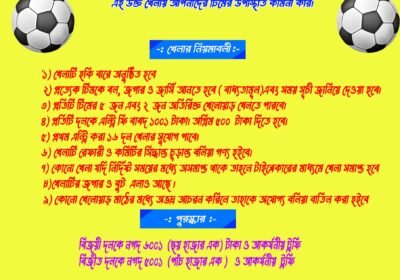 এই উক্ত খেলায় আপনাদের টিমের উপস্থিতি কামনা করি।
-: খেলার নিয়মাবলী:-
১) খেলাটি হকি বারে অনুষ্ঠিত হবে
২) প্রত্যেক টিমকে বল, জুপার ও জার্সি আনতে হবে ( বাধ্যতামুল)এবং সময় সূচী জানিয়ে দেওয়া হবে।
৩) প্রতিটি টিমের ৫ জন এবং ২ জন অতিরিক্ত খেলোয়াড় খেলতে পারবে।
৪) প্রতিটি দলকে এন্ট্রি ফি বাবদ ১০০১ টাকা। অগ্রিম ৫০০ টাকা দিতে হবে।
৫) প্রথম এন্ট্রি করা ১৬ দল খেলার সুযোগ পাবে।
৬) খেলাটি রেফারী ও কমিটির সিদ্ধান্ত চুড়ান্ত বলিয়া গণ্য হইবে।
৭) কোনো খেলা যদি নির্দিষ্ট সময়ের মধ্যে অসমাপ্ত থাকে তাহলে টাইব্রেকারের মাধ্যমে খেলা সমাপ্ত হবে
৪)খেলাটির জুপার ও বুট এলাও আছে।
৯) কোনো খেলোয়াড় মাঠের মধ্যে অভদ্র আচরন করিলে তাহাকে অযোগ্য বলিয়া বাতিল করা হইবে
-: পুরস্কার :-
বিজয়ী দলকে নগদ ৬০০১ (ছয় হাজার এক) টাকা ও আকর্ষনীয় ট্রফি
বিজীত দলকে নগদ ৫০০১ (পাঁচ হাজার এক ) ও আকর্ষনীয় ট্রফি